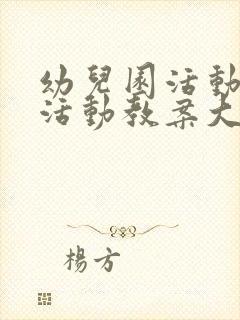 幼兒園活動
活動教案大
楊方